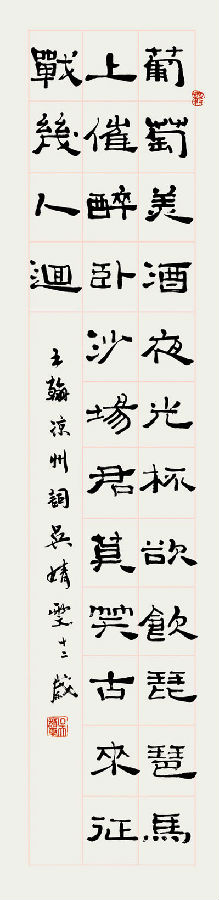 葡萄美酒夜光杯欲飲琵琶馬
上催醉臥沙場君莫笑古來征
戰幾人迴
王翰涼州詞吳婧雯十二歲